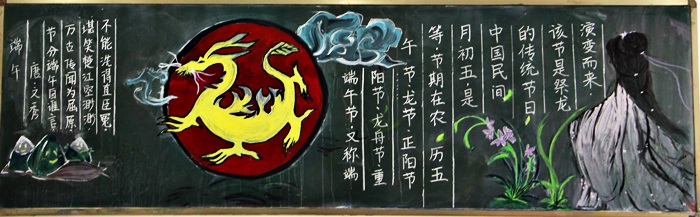 端午
唐文秀
节分端午自谁言
万古传闻为屈原
堪笑楚江空渺渺,
不能洗得直臣冤
端午节,又称端
阳节、龙舟节、重
午节、龙节、正阳节
等,节期在农历五
月初五,是
中国民间
的传统节日
该节是祭龙
演变而来